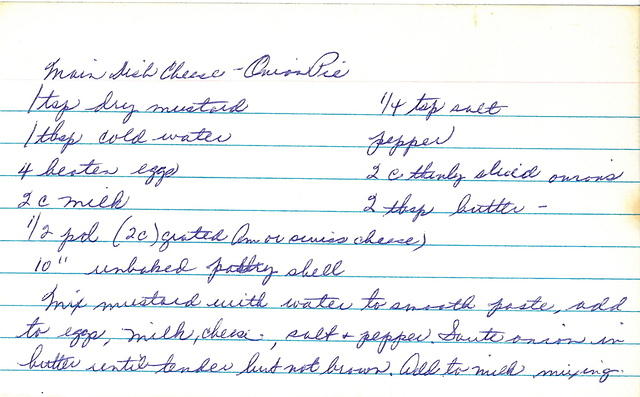 Main Dish Cheese - Onion Pie
1 tsp dry mustard
1 tbsp cold water
4 beaten eggs
2 c milk
1/4 tsp salt
pepper
2 c thinly sliced onions
2 tbsp butter -
1/2 pd (2c) grated (Am or swiss cheese)
10" unbaked pastry shell
Mix mustard with water to smooth paste, add
to eggs, milk, cheese, salt + pepper. Saute onion in
butter until tender but not brown. Add to milk mixing.